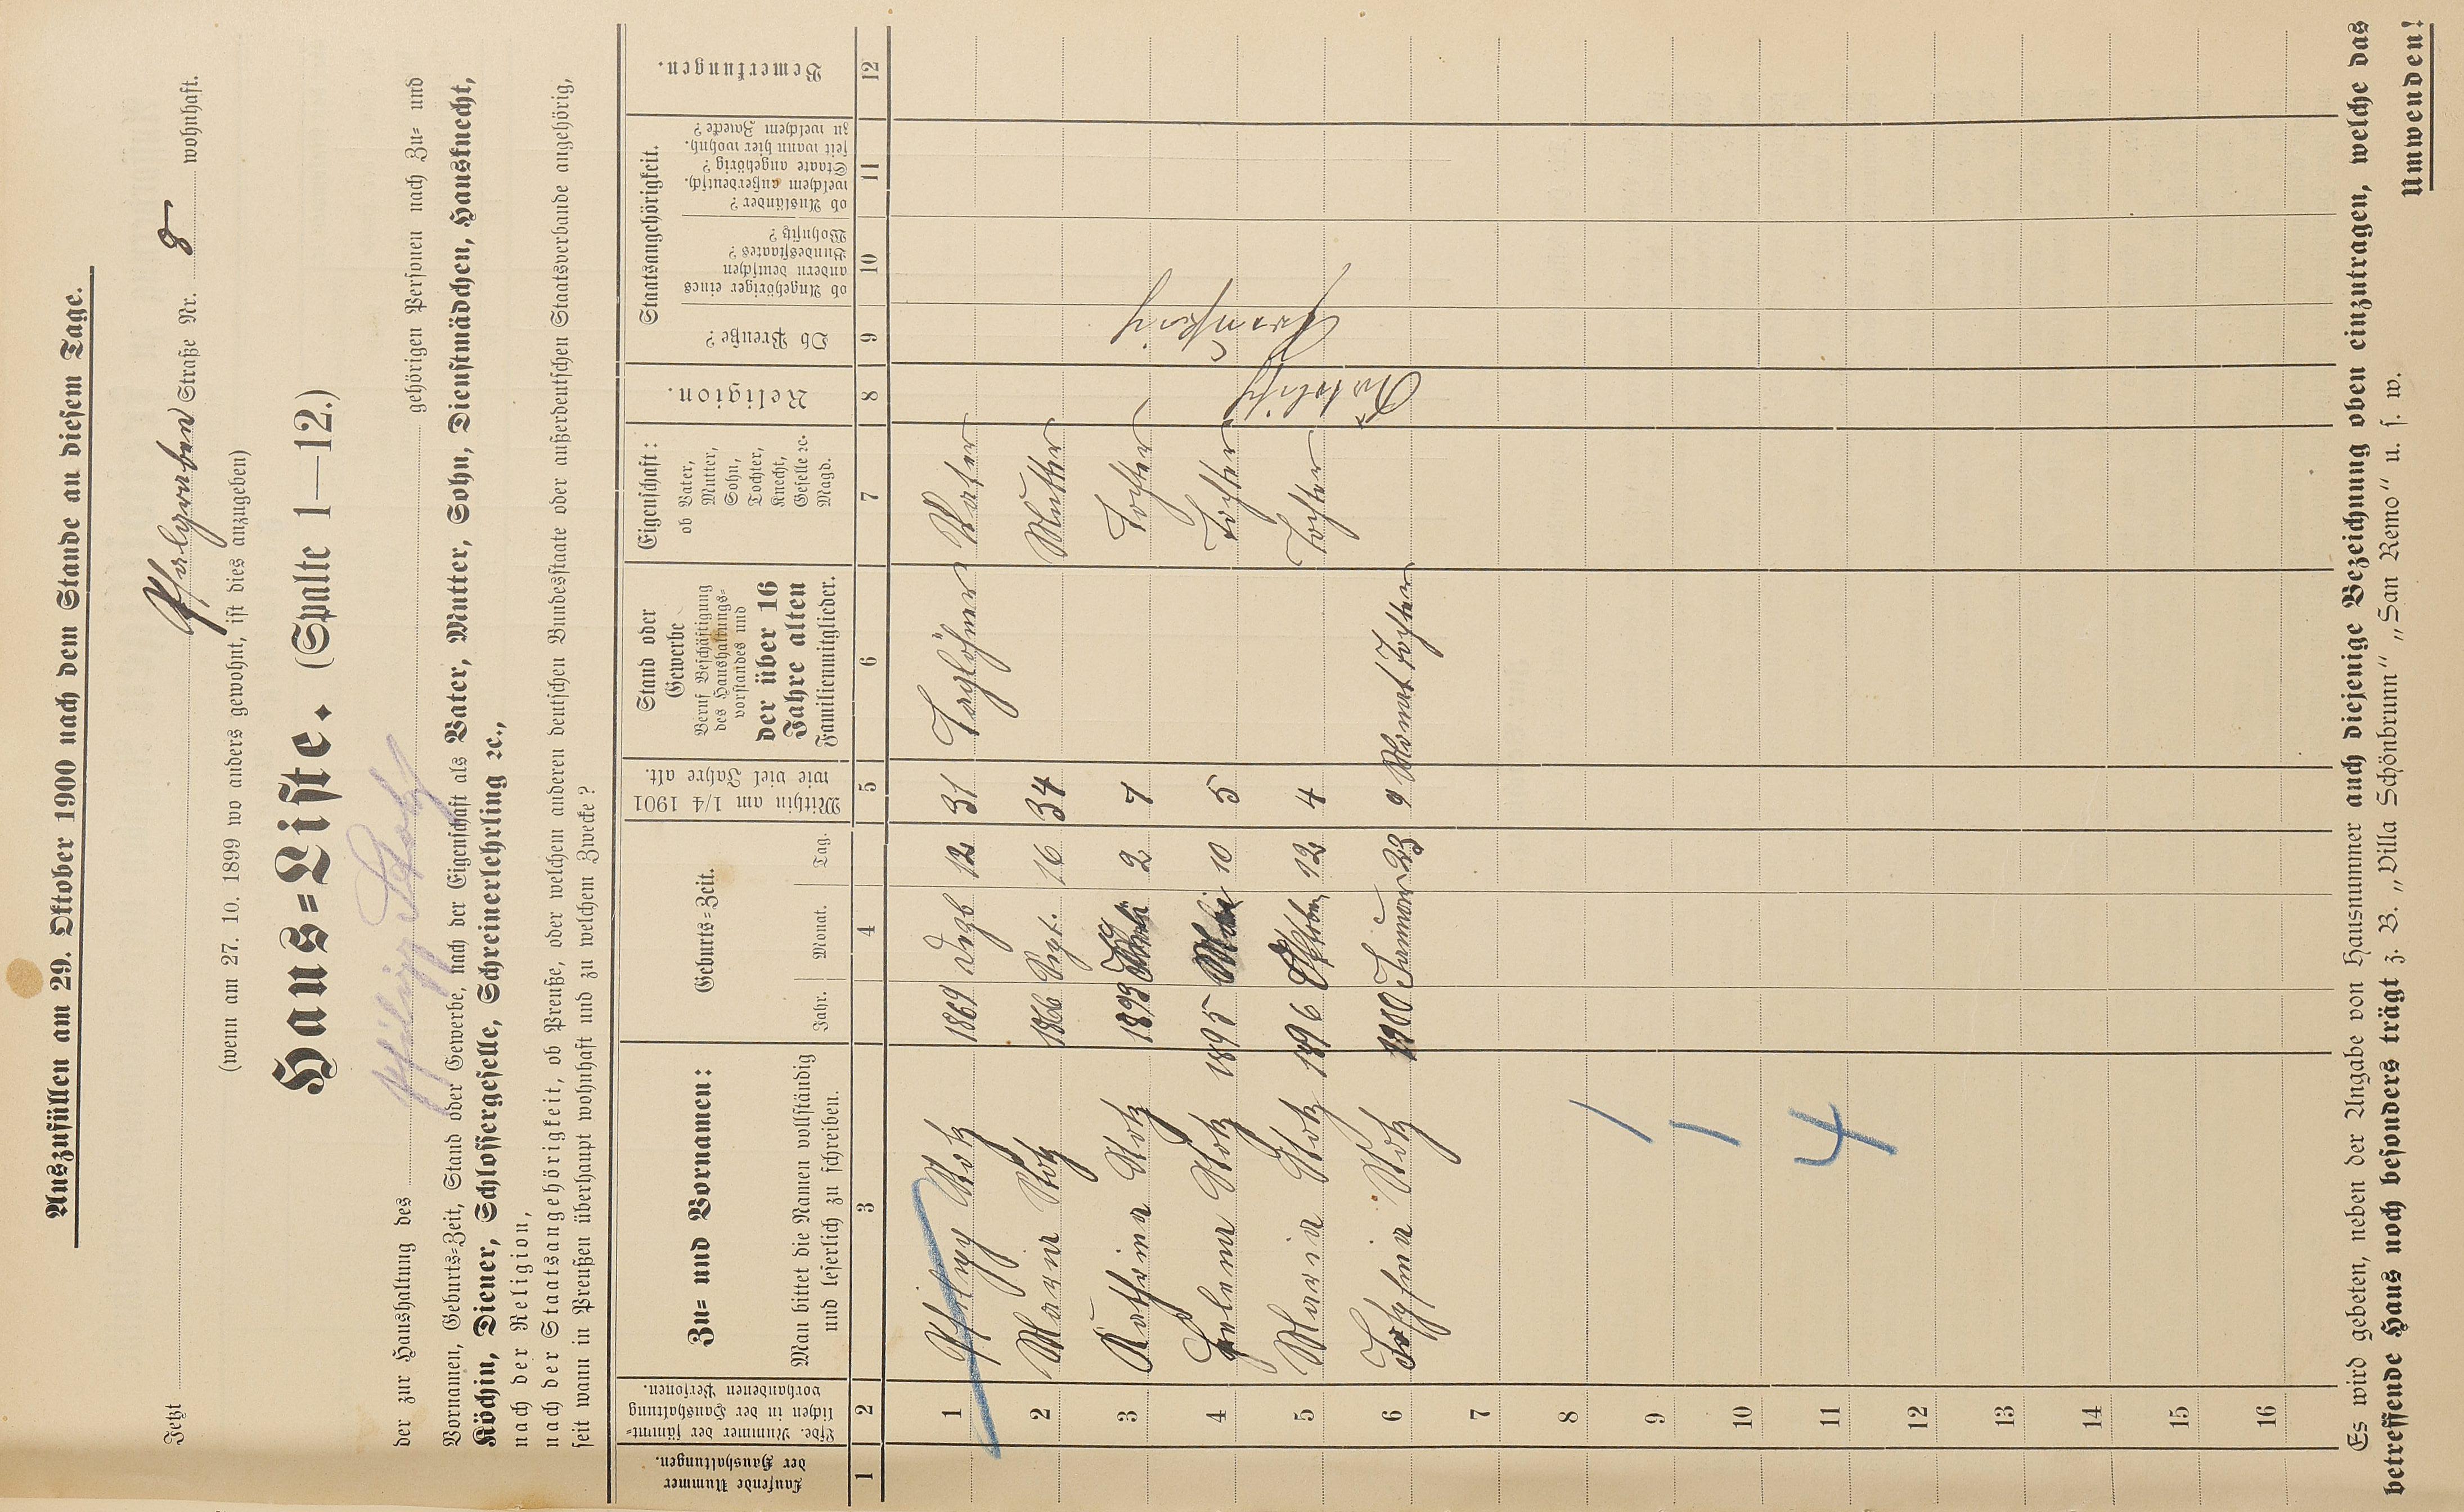 Auszufüllen am 29. Oktober 1900 nach dem Stande an diesem Tage.
Jetzt Pfalzgraben Straße Nr. 8 wohnhaft.
(wenn am 27. 10. 1899 wo anders gewohnt, ist dies anzugeben)
Haus=Liste. (Spalte 1—12.)
der zur Haushaltung des Philipp Stotz gehörigen Personen nach Zu= und
Vornamen, Geburts=Zeit, Stand oder Gewerbe, nach der Eigenschaft als Vater, Mutter, Sohn, Dienstmädchen, Hausknecht,
Köchin, Diener, Schlossergeselle, Schreinerlehrling ꝛc.,
nach der Religion,
nach der Staatsangehörigkeit, ob Preuße, oder welchem anderen deutschen Bundesstaate oder außerdeutschen Staatsverbande angehörig,
seit wann in Preußen überhaupt wohnhaft und zu welchem Zwecke?
Laufende Nummer der Haushaltungen.
Lfde. Nummer der sämmt=lichen in der Haushaltung vorhandenen Personen.
Zu= und Vornamen:
Man bittet die Namen vollständig und leserlich zu schreiben.
Geburts=Zeit.
Jahr. Monat. Tag.
Mithin am 1/4 1901 wie viel Jahre alt.
Stand oder Gewerbe
Beruf Beschäftigung des Haushaltungs=vorstandes und
der über 16 Jahre alten Familienmitglieder.
Eigenschaft:
ob Vater, Mutter, Sohn, Tochter, Knecht, Geselle ꝛc. Magd.
Religion.
Staatsangehörigkeit.
Ob Preuße?
ob Angehöriger eines andern deutschen Bundesstaates? Wohnsitz?
ob Ausländer? welchem außerdeutsch. Staate angehörig? seit wann hier wohnh. zu welchem Zwecke?
Bemerkungen.
1 2 3 4 5 6 7 8 9 10 11 12
1 Philipp Stotz 1869 Dezb 12 31 Taglöhner Vater
2 Maria Stotz 1866 Sept. 16 34 Mutter
3 Kathrina Stotz 1893 2 7 Tochter
4 Helena Stotz 1895 Mai 10 5 Tochter
5 Maria Stotz 1896 Oktober 12 4 Tochter
6 Josephina Stotz 1900 Januar 23 9 Monat Tochter
Katholisch
Preussisch
7
8
9
10
11
12
13
14
15
16
1
1
4
Es wird gebeten, neben der Angabe von Hausnummer auch diejenige Bezeichnung oben einzutragen, welche das
betreffende Haus noch besonders trägt z. B. „Villa Schönbrunn“ „San Remo“ u. s. w.
Umwenden!